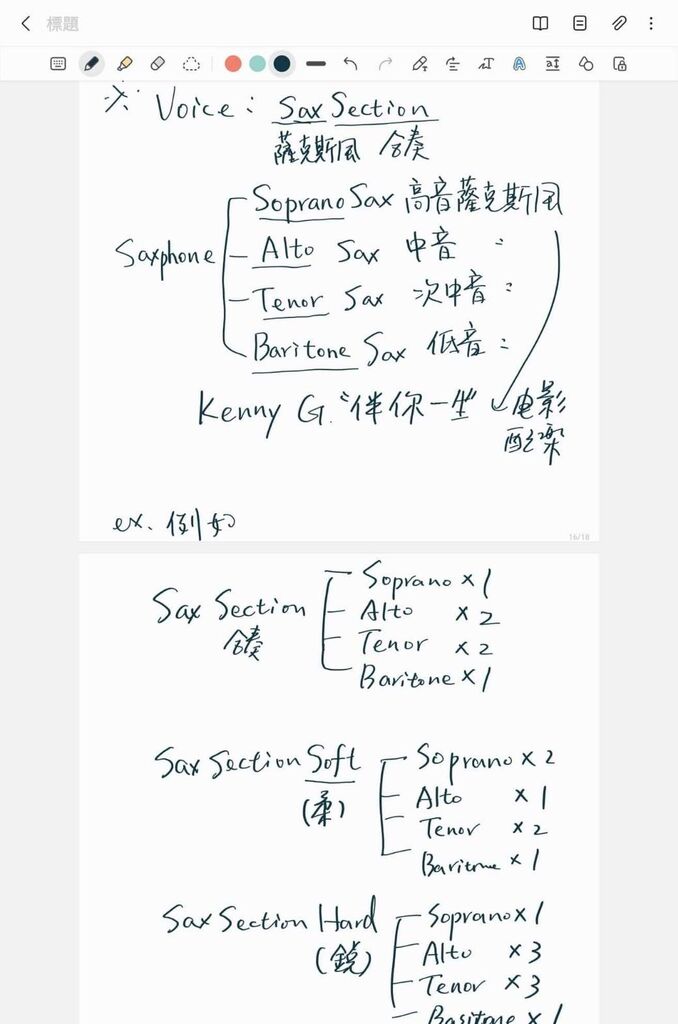 標題
※ Voice: Sax Section
薩克斯風 合奏
Saxphone
Soprano Sax 高音薩克斯風
Alto Sax 中音 〃
Tenor Sax 次中音 〃
Baritone Sax 低音 〃
Kenny G. "伴你一生" 电影
配樂
ex. 例如
16/18
Sax Section
合奏
Soprano × 1
Alto × 2
Tenor × 2
Baritone × 1
Sax Section Soft
(柔)
Soprano × 2
Alto × 1
Tenor × 2
Baritone × 1
Sax Section Hard
Soprano × 1
Alto × 3
Tenor × 3
Baritone × 1